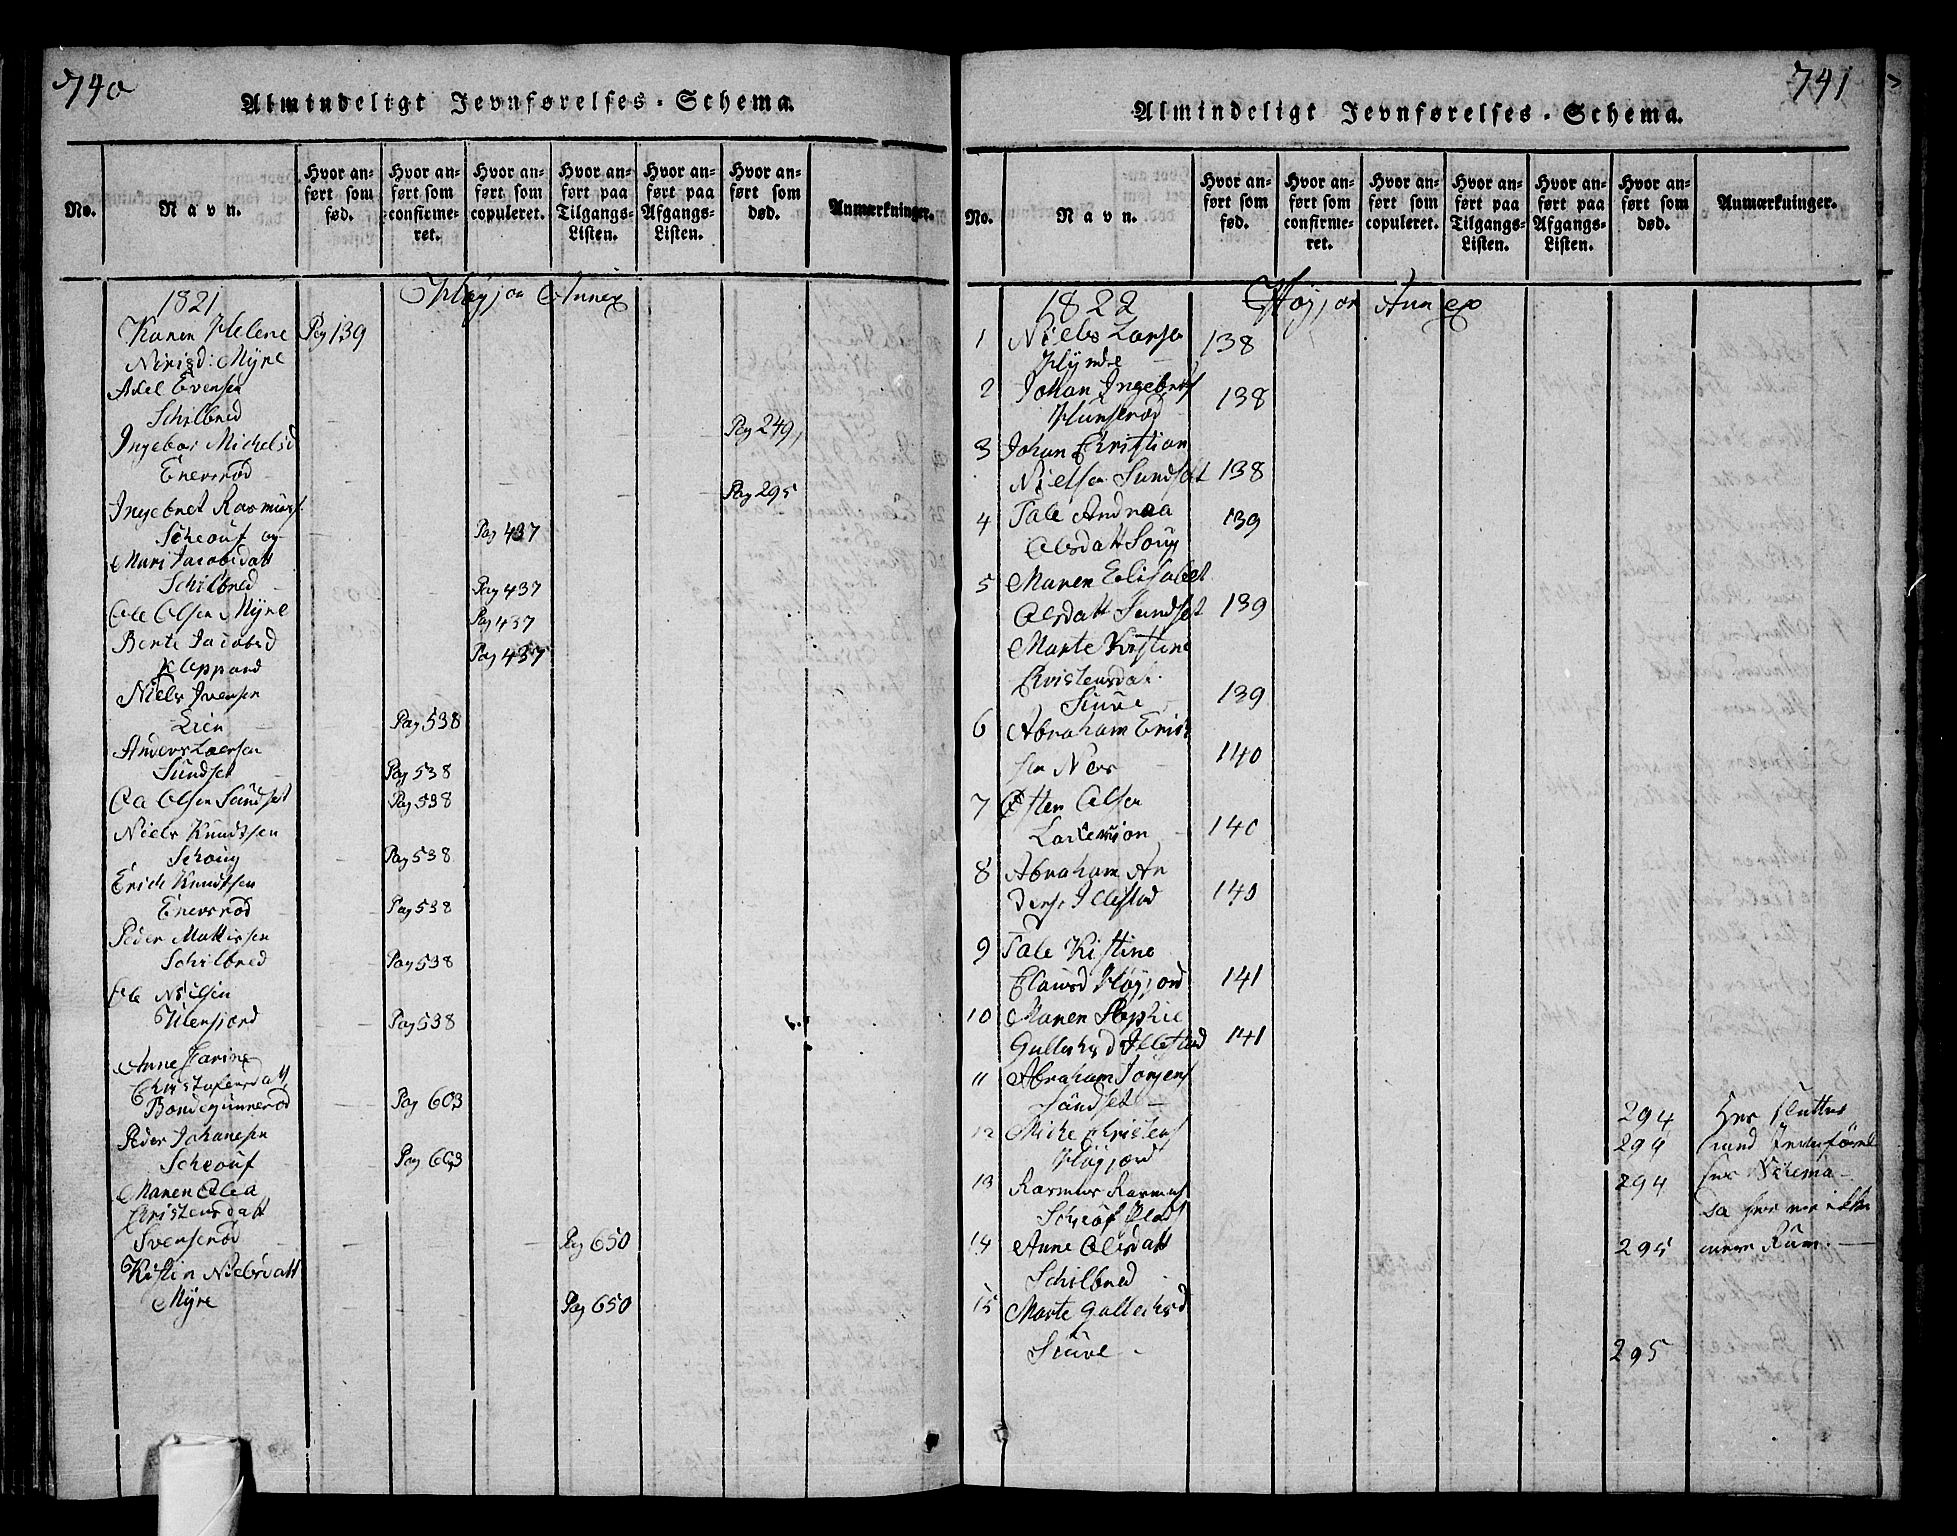 740
Almindeligt Jevnførelses-Schema.
No.
Navn.
Hvor anført som fød.
Hvor anført som confirmeret.
Hvor anført som copuleret.
Hvor anført paa Tilgangs-Listen.
Hvor anført paa Afgangs-Listen.
Hvor anført som død.
Anmærkninger.
1821 Høyjor Annex
Karen Helene Pag 139
Myre
Axel Evensen
Schilbred Pag 249
Ingebor Michelsd
Enersrød Pag 295
Ingebret Rasmuss.
Scheouf og Pag 437
Mari Jacobsdatt
Schilbred Pag 437
Ole Olsen Myre Pag 437
Bente Jacobsd Pag 437
Kleppard
Niels Ivensen
Lien Pag 538
Anders Laersen
Sündset Pag 538
Ola Olsen Sündset Pag 538
Niels Knudtsen
Schoug Pag 538
Erich Knudtsen
Enersrød Pag 538
Peder Mattissen
Schilbred Pag 538
Ole Nilsen
Pag 538
Anne Karine
Christofersdatt
Bondegunnerød Pag 603
Peder Johanesen
Scheouf Pag 603
Maren Olea
Christensdatt
Svenserød Pag 650
Kistin Nielsdatt
Myre Pag 650
741
Almindeligt Jevnførelses-Schema.
No.
Navn.
Hvor anført som fød.
Hvor anført som confirmeret.
Hvor anført som copuleret.
Hvor anført paa Tilgangs-Listen.
Hvor anført paa Afgangs-Listen.
Hvor anført som død.
Anmærkninger.
1822 Høyjor Annex
1 Niels Larse 138
Hynne
2 Johan Ingebrets 138
3 Johan Christian
Nielsen Sundset 138
4 Tale Andrea 139
Olsdatt Soug
5 Maren Elisabet
Olsdatt Sundset 139
Marte Kistine
Christensdat.
Siüve 139
6 Abraham Erich
sen Nes 140
7 Often Olsen
140
8 Abraham An
ders Illestad 140
9 Tale Kistine
Clausd Høyjord 141
10 Maren Sophie
Gulleksd Illestad 141
11 Abraham Jörgens
Sandset 294
12 Christens 294
Høyjord
13 Rasmus Rasmus 294
Scheouf
14 Anne Olsdatt 295
Schilbred
15 Marte Gulleksd
Siüve 295
Her sluttes
Schema
da her er ikke
mere Rum.